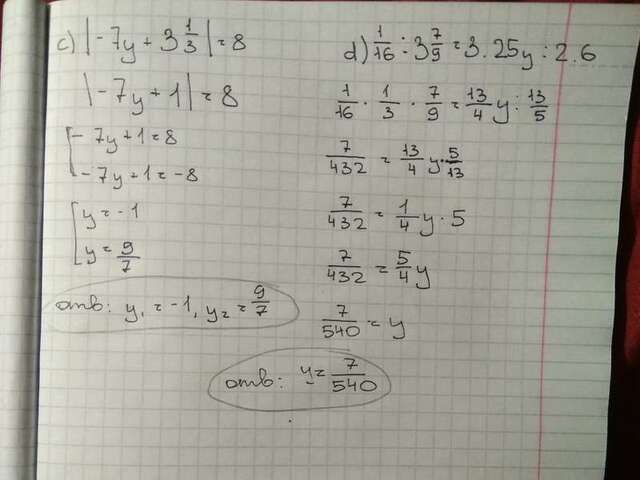 c) |-7y + 3 1/3| = 8
|-7y + 1| = 8
[-7y + 1 = 8
-7y + 1 = -8
[y = -1
y = 9/7
отв: y₁ = -1, y₂ = 9/7
d) 1/16 : 3 7/9 = 3.25y : 2.6
1/16 · 1/3 · 7/9 = 13/4 y : 13/5
7/432 = 13/4 y · 5/13
7/432 = 1/4 y · 5
7/432 = 5/4 y
7/540 = y
отв: y = 7/540